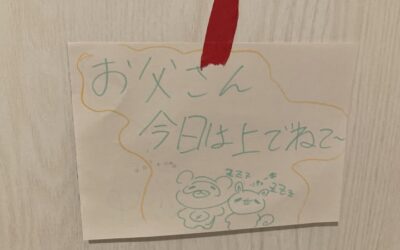 お父さん
今日は上でねて〜
zzz
zzz